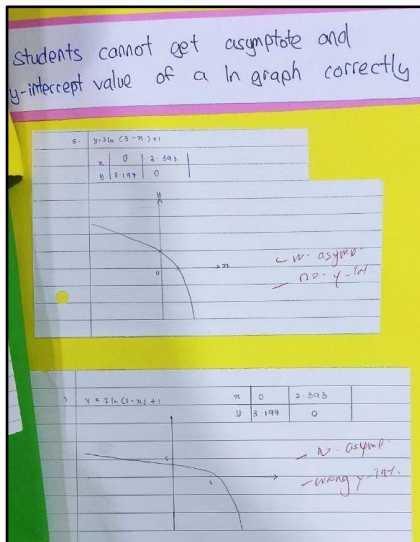 students cannot get asymptote and
y-intercept value of a ln graph correctly
5. y=2ln(3-x)+1
x 0 2.393
y 3.197 0
y
0
x
no asymp.
no y-int.
y = 2 ln (3-x) +1
x 0 2.393
y 3.197 0
asymp.
wrong y-int.